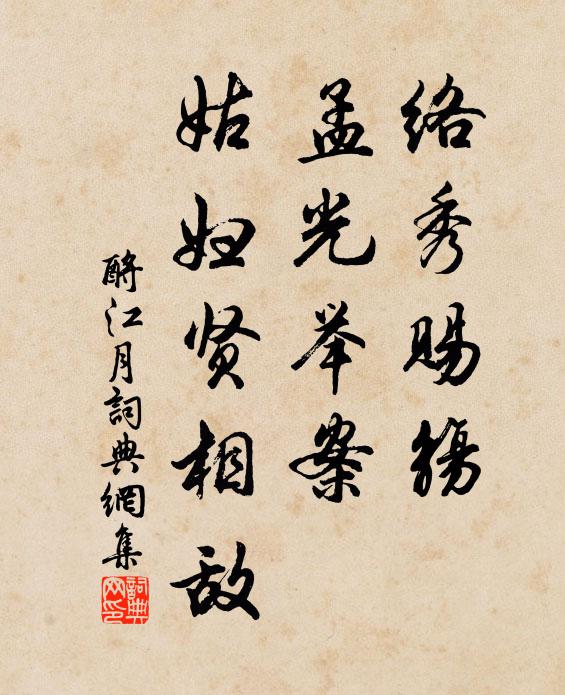 络秀赐觞
孟光举案
姑妇贤相敌
酹江月詞典網集
詞典网印